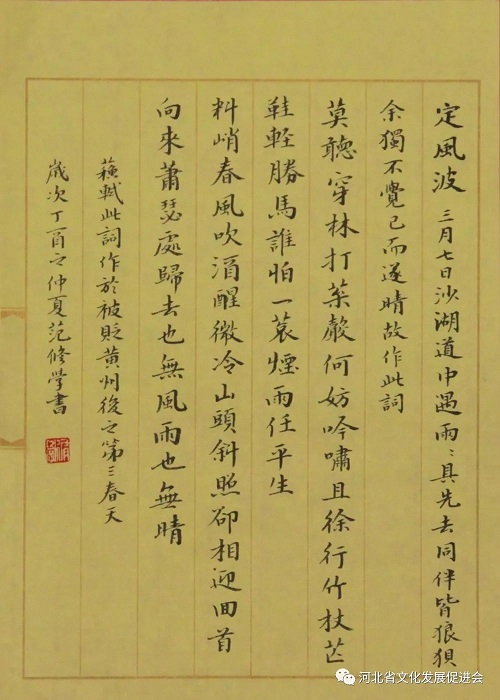 定風波 三月七日沙湖道中遇雨〻具先去同伴皆狼狽
余獨不覺已而遂晴故作此詞
莫聽穿林打葉聲何妨吟嘯且徐行竹杖芒
鞋軽勝馬誰怕一蓑煙雨任平生
料峭春風吹酒醒微冷山頭斜照卻相迎回首
向來蕭瑟處歸去也無風雨也無晴
蘇軾此詞作於被貶黄州後之第三春天
歲次丁酉之仲夏范修学書
河北省文化发展促进会